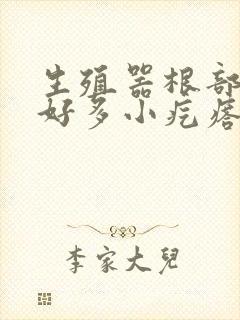 生殖器根部
好多小疙瘩
李家大兒